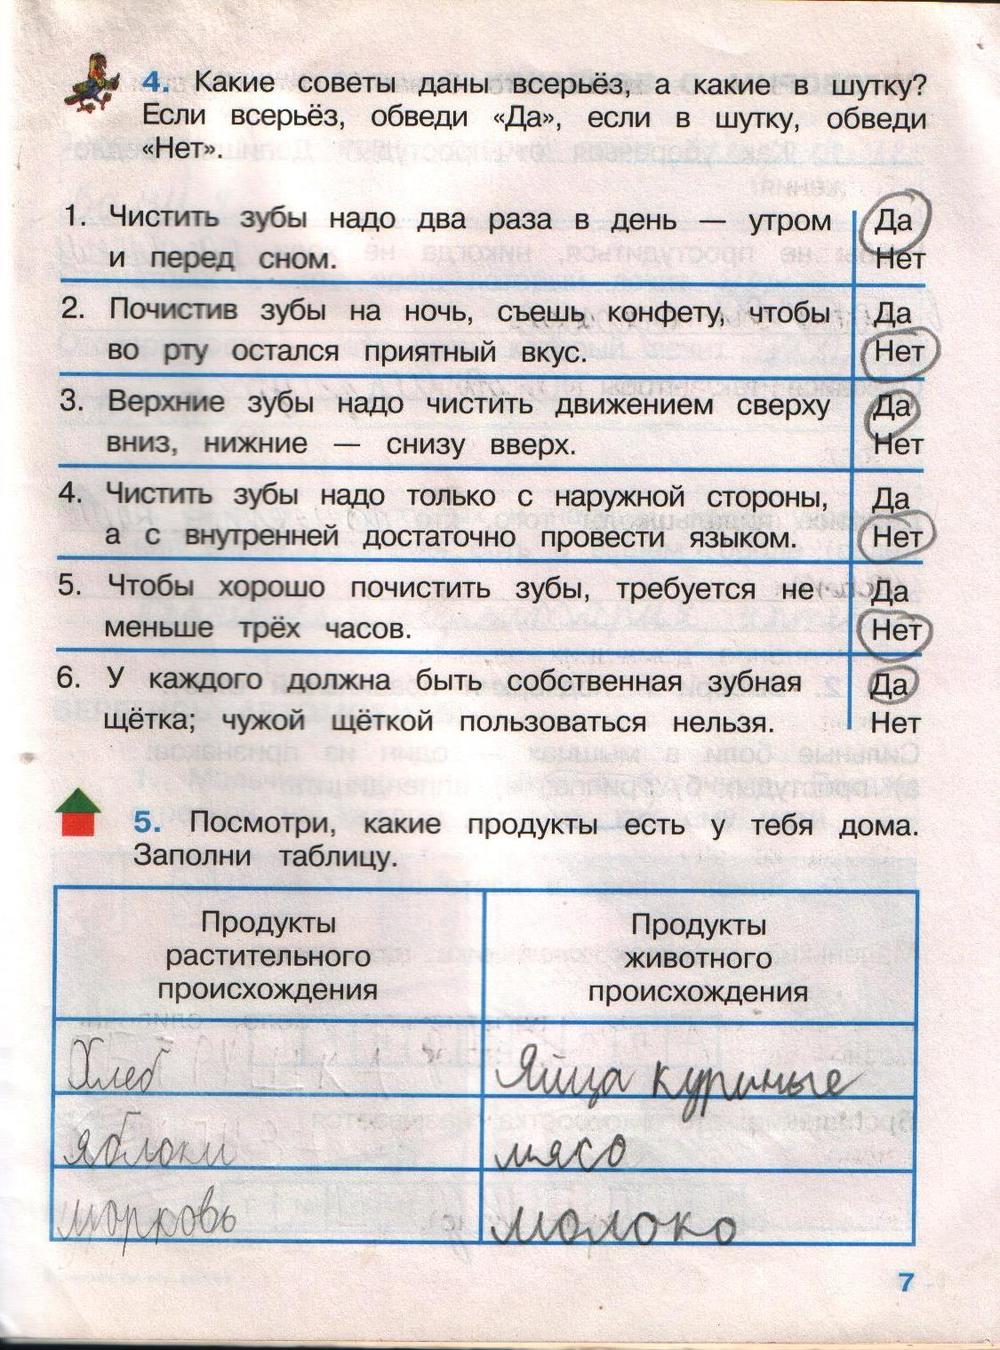 4. Какие советы даны всерьёз, а какие в шутку?
Если всерьёз, обведи «Да», если в шутку, обведи
«Нет».
1. Чистить зубы надо два раза в день — утром Да
и перед сном. Нет
2. Почистив зубы на ночь, съешь конфету, чтобы Да
во рту остался приятный вкус. Нет
3. Верхние зубы надо чистить движением сверху Да
вниз, нижние — снизу вверх. Нет
4. Чистить зубы надо только с наружной стороны, Да
а с внутренней достаточно провести языком. Нет
5. Чтобы хорошо почистить зубы, требуется не Да
меньше трёх часов. Нет
6. У каждого должна быть собственная зубная Да
щётка; чужой щёткой пользоваться нельзя. Нет
5. Посмотри, какие продукты есть у тебя дома.
Заполни таблицу.
Продукты
растительного
происхождения
Продукты
животного
происхождения
Хлеб Яйца куриные
яблоки мясо
морковь молоко
7